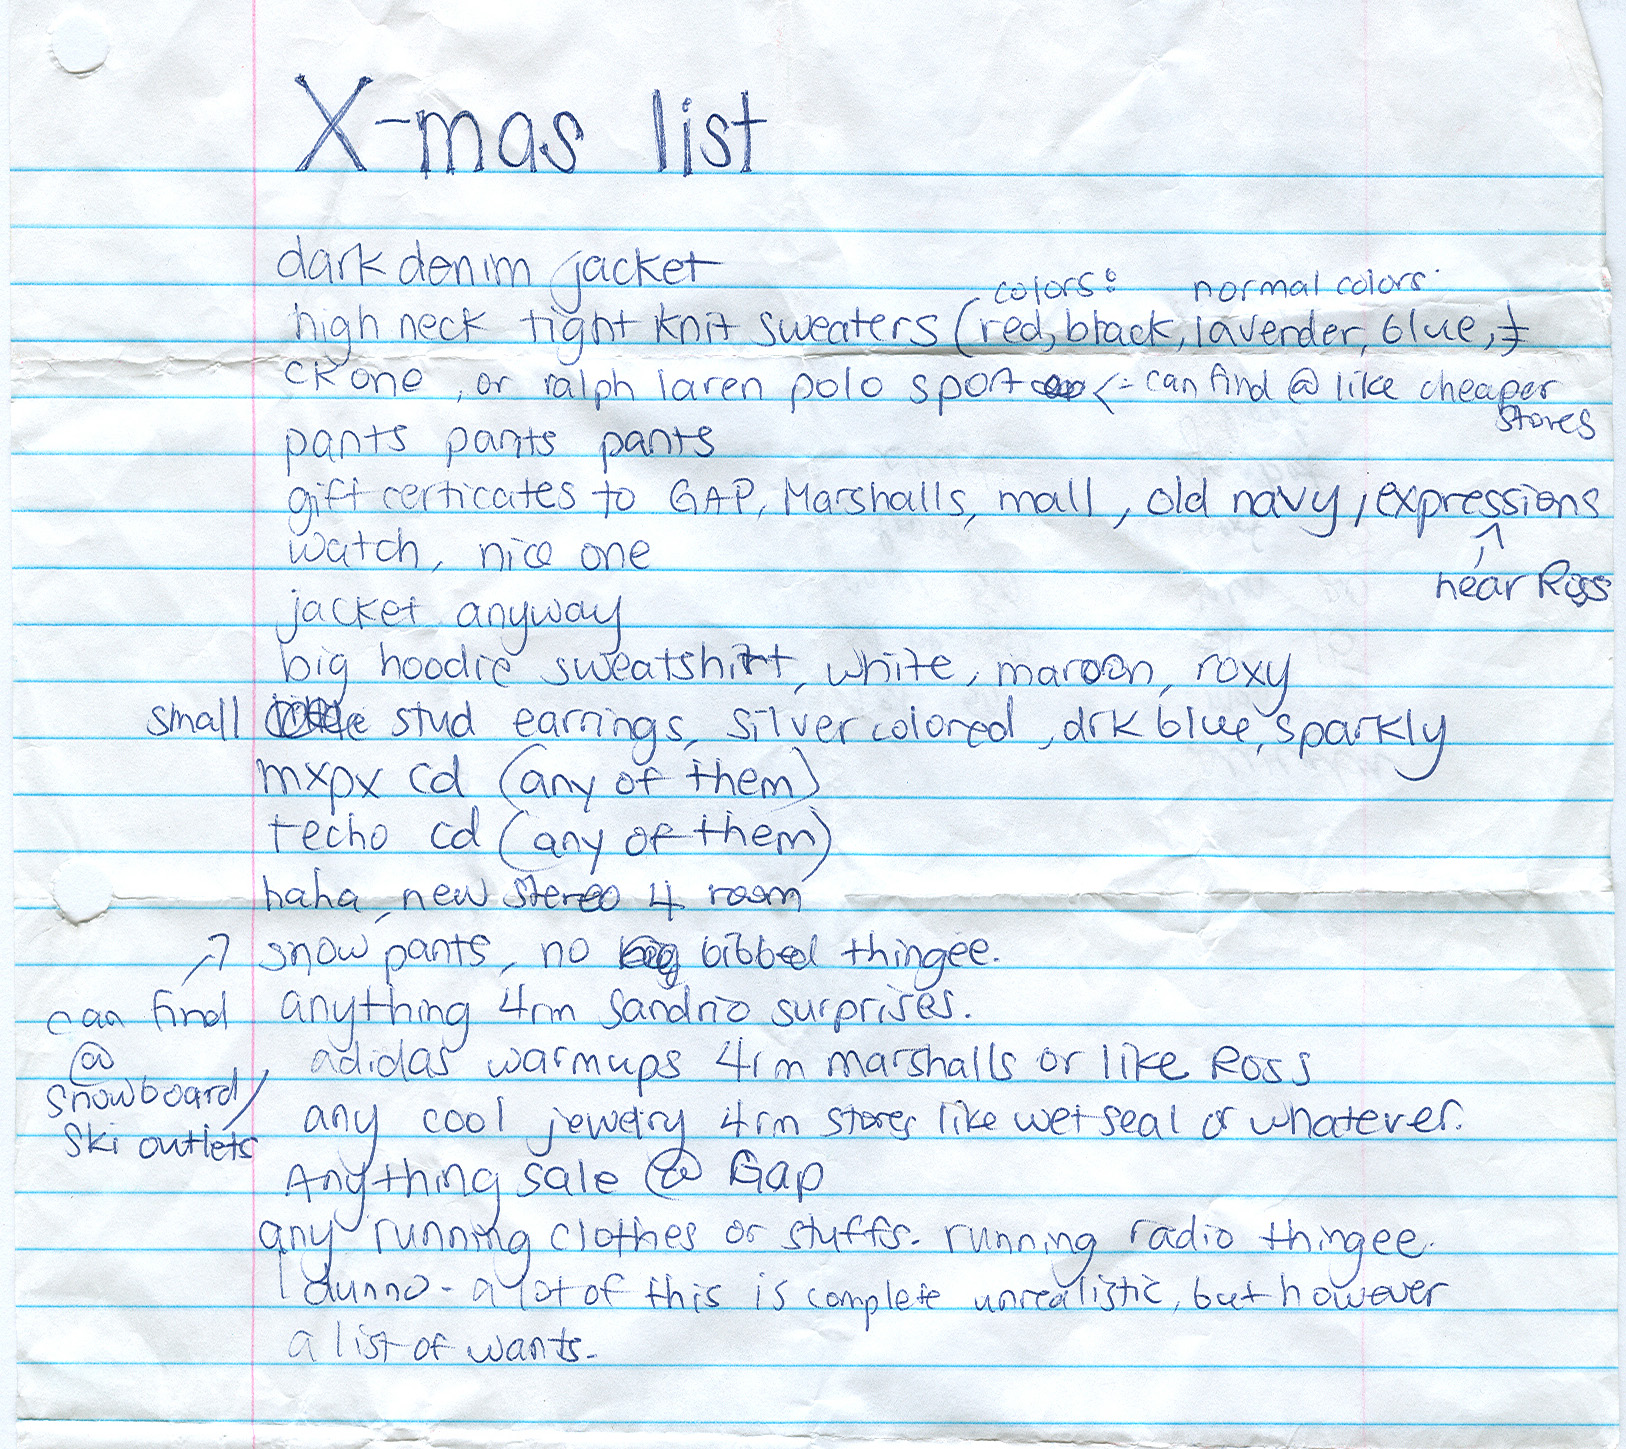 X-mas list
dark denim jacket
colors: normal colors
high neck tight knit sweaters (red, black, lavender, blue,
ck one, or ralph laren polo sport <- can find @ like cheaper
stores
pants pants pants
gift certicates to GAP, Marshalls, mall, old navy, expressions
watch, nice one
near Ross
jacket anyway
big hoodie sweatshirt, white, maroon, roxy
small stud earrings, silver colored, drk blue, sparkly
mxpx cd (any of them)
techo cd (any of them)
haha, new stereo 4 room
snow pants, no bibbed thingee.
can find
@
snowboard/
ski outlets
anything 4rm sandrio surprises.
adidas warmups 4rm marshalls or like Ross
any cool jewelry 4rm stores like wet seal or whatever.
Anything sale @ Gap
any running clothes or stuffs. running radio thingee.
I dunno - a lot of this is complete unrealistic, but however
a list of wants.